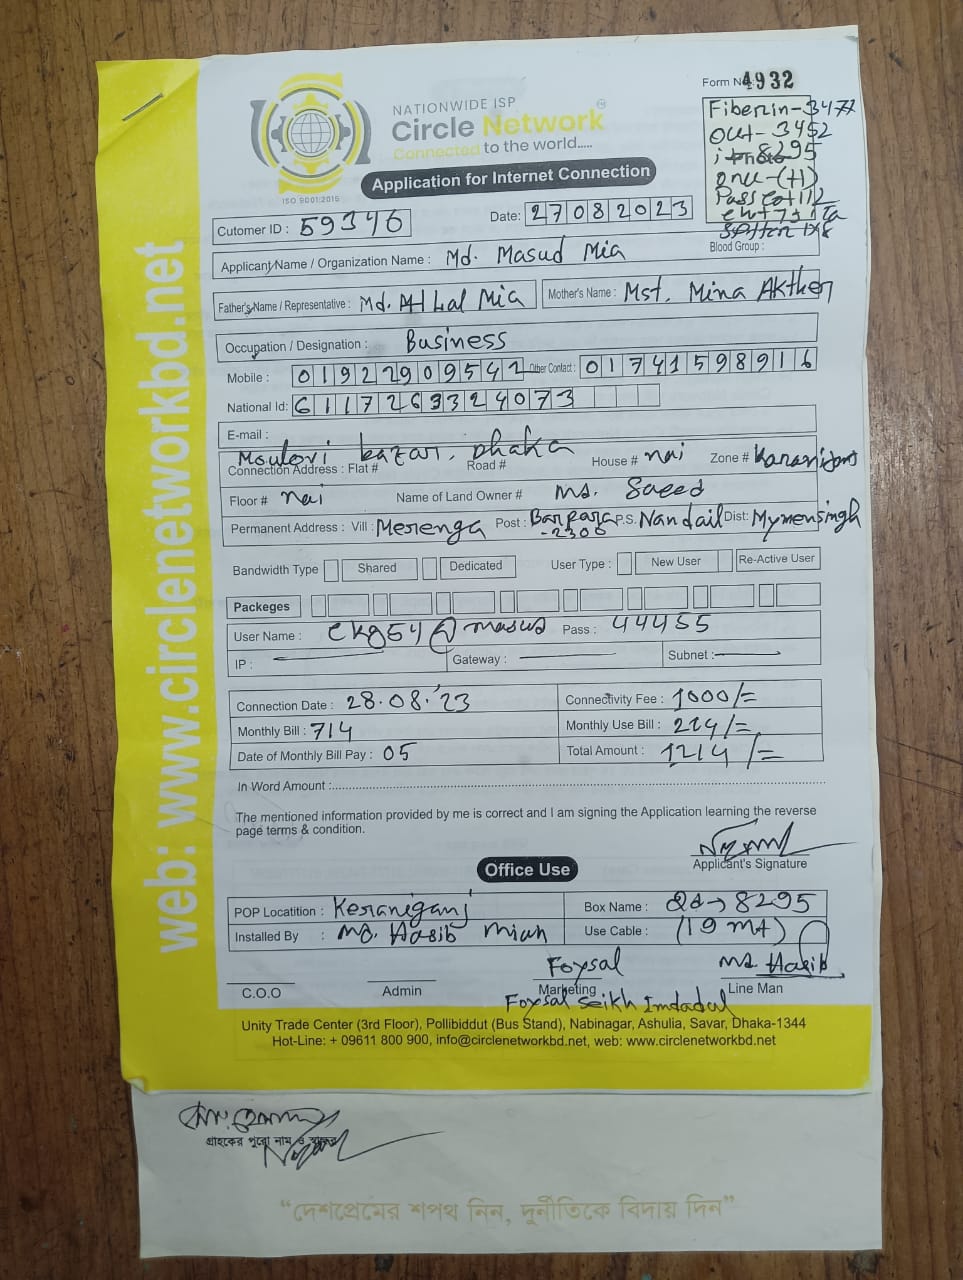 Form No 4932
Fiberin-3477
out-3452
8295
onu-(+1)
NATIONWIDE ISP
Circle Network
Connected to the world.....
ISO 9001:2015
Application for Internet Connection
Cutomer ID : 59346
Date: 27082023
Blood Group :
Applicant Name / Organization Name : Md. Masud Mia
Father's Name / Representative : Md. Lal Mia
Mother's Name : Mst. Mina Akther
Occupation / Designation : Business
Mobile : 01922909542 Other Contact : 01741598916
National Id: 6117269324073
E-mail :
Moulovi bazar, Dhaka
Connection Address : Flat # Road # House # nai Zone # Karanijonj
Floor # nai Name of Land Owner # Md. Saeed
Permanent Address : Vill : Merenga Post : Barpara P.S. Nandail Dist: Mymensingh
-2300
Bandwidth Type Shared Dedicated User Type : New User Re-Active User
Packeges
User Name : ckg54@masud Pass : 44455
IP : Gateway : Subnet :
Connection Date : 28.08.'23 Connectivity Fee : 1000/=
Monthly Bill : 714 Monthly Use Bill : 214/=
Date of Monthly Bill Pay : 05 Total Amount : 1214/=
In Word Amount :
The mentioned information provided by me is correct and I am signing the Application learning the reverse
page terms & condition.
Applicant's Signature
Office Use
POP Locatition : Keraniganj Box Name : 8295
Installed By : Md. Hasib Miah Use Cable : (19 mt)
Foysal Md. Hasib
C.O.O Admin Marketing Line Man
Foysal Seikh Imdadul
Unity Trade Center (3rd Floor), Pollibiddut (Bus Stand), Nabinagar, Ashulia, Savar, Dhaka-1344
Hot-Line: + 09611 800 900, info@circlenetworkbd.net, web: www.circlenetworkbd.net
web: www.circlenetworkbd.net
গ্রাহকের পুরো নাম ও স্বাক্ষর
“দেশপ্রেমের শপথ নিন, দুর্নীতিকে বিদায় দিন”